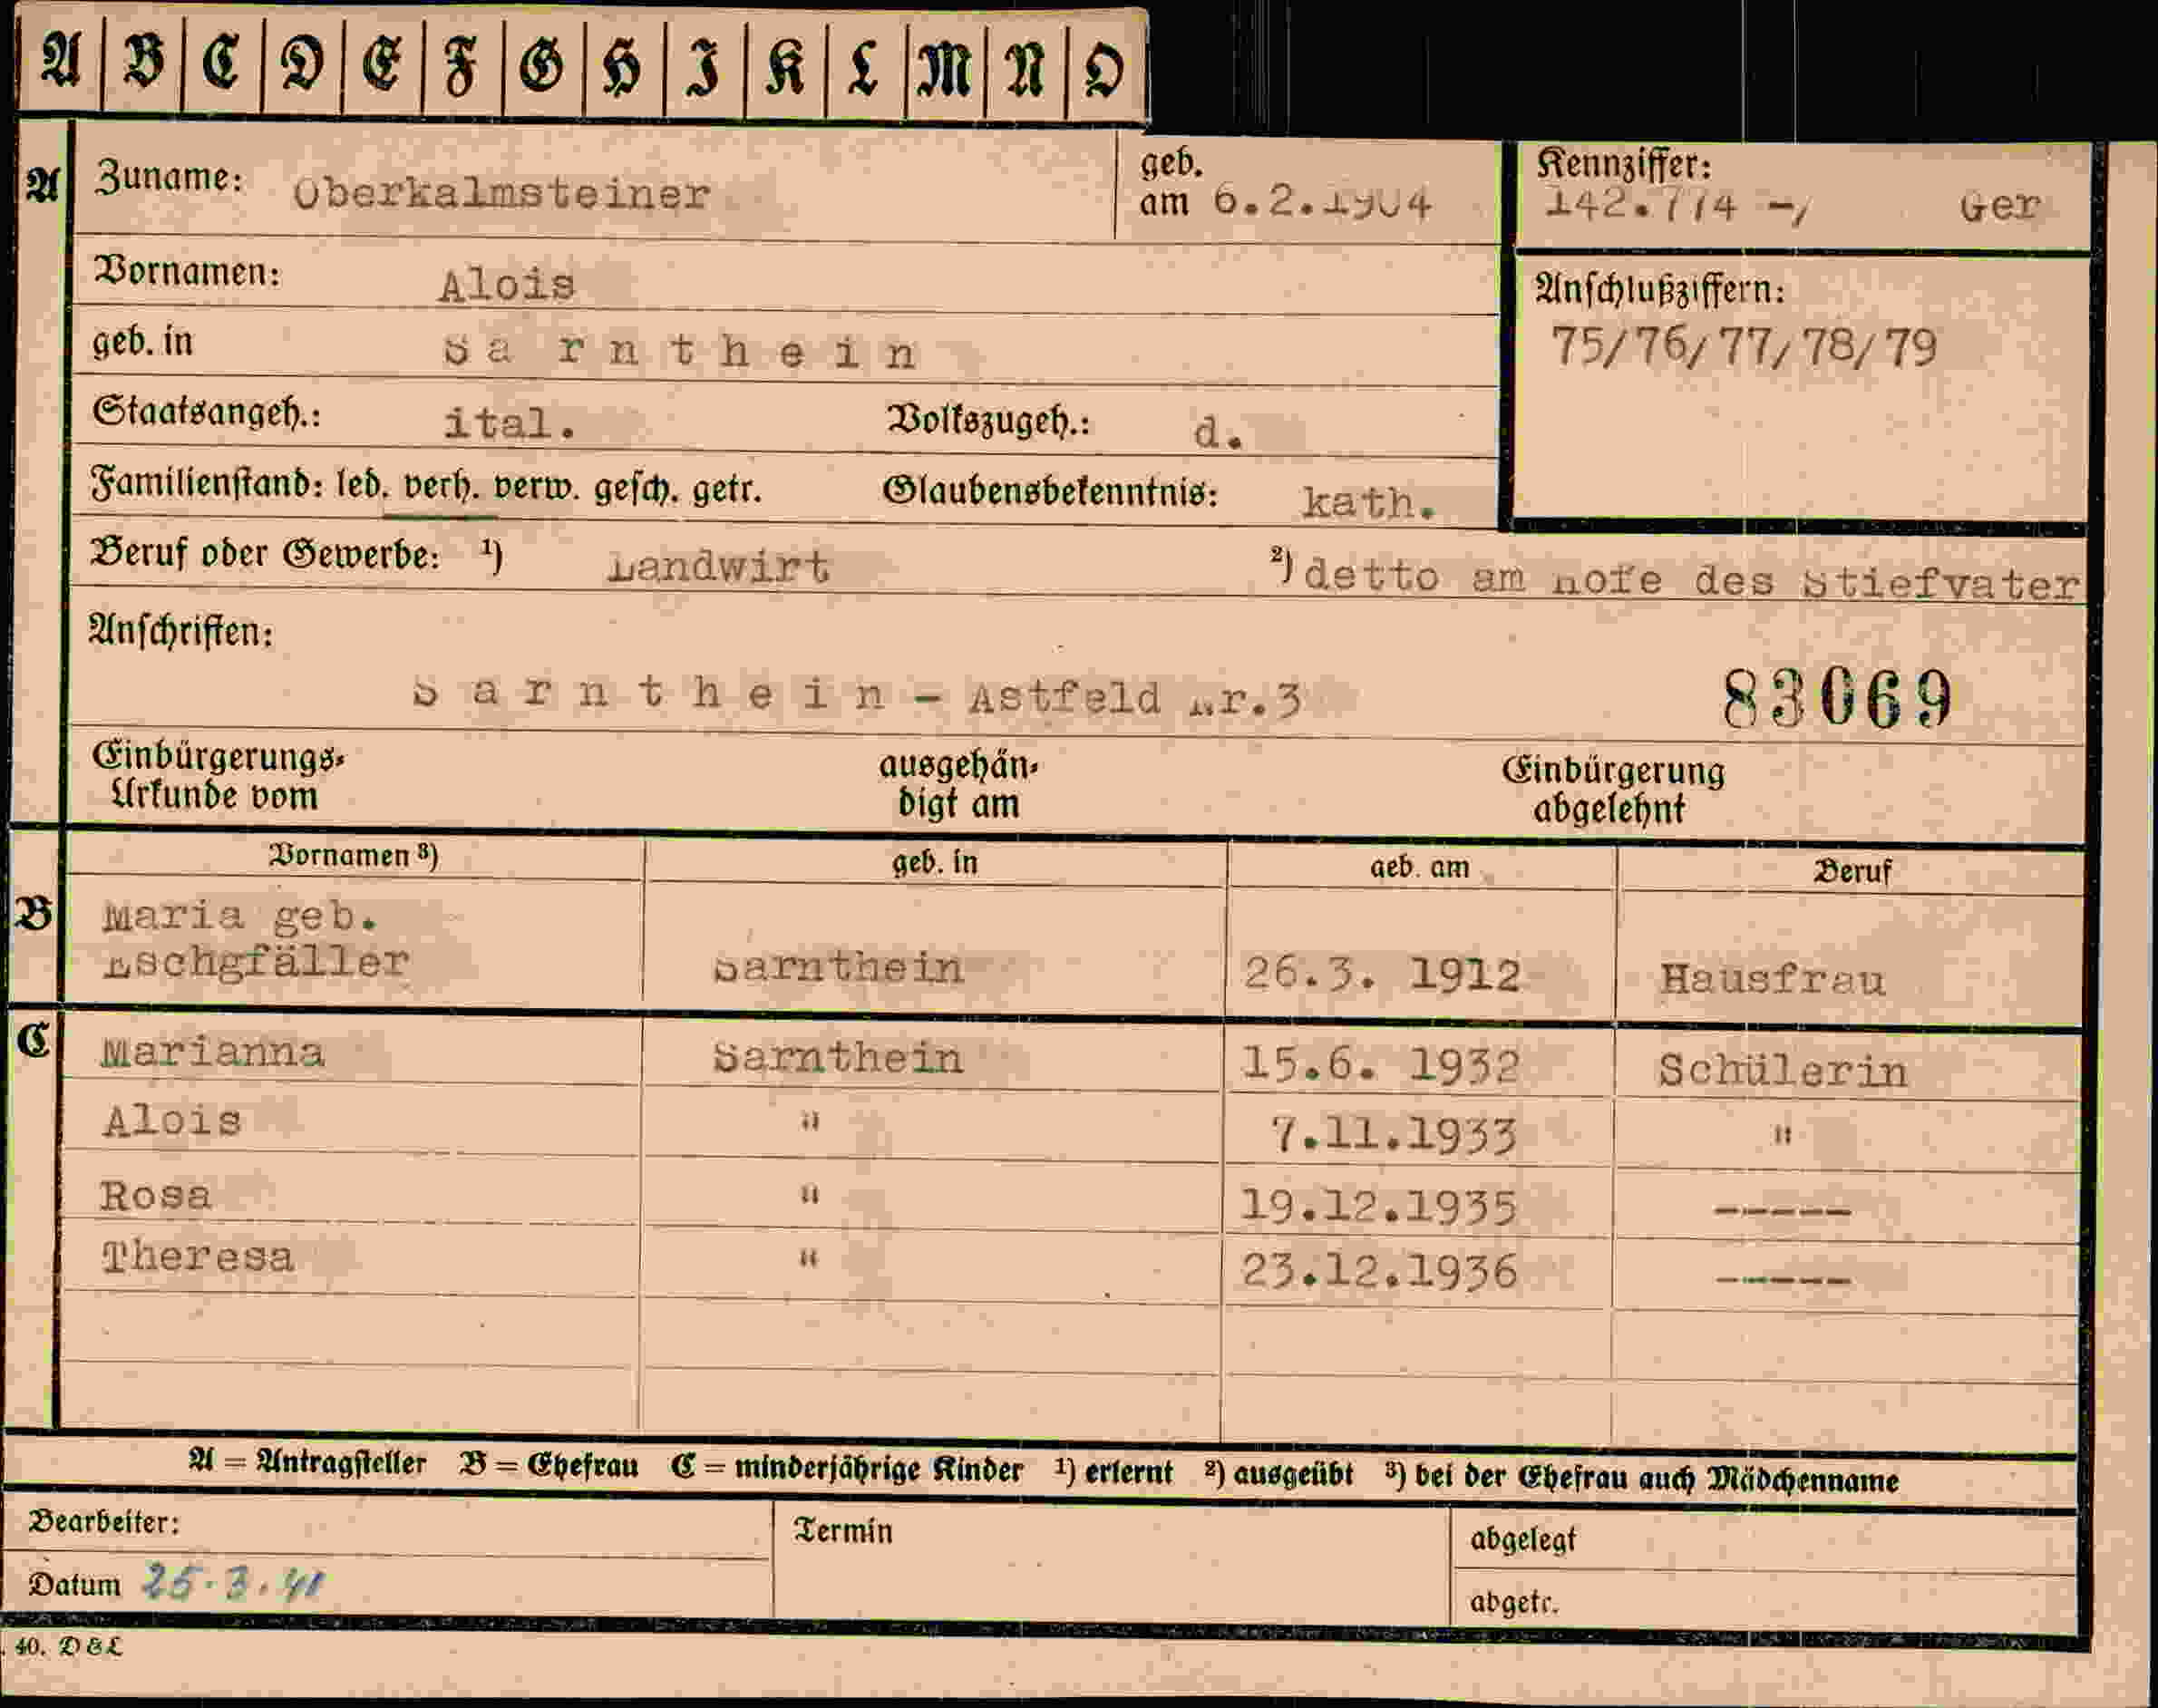 A B C D E F G H I K L M N O
A Zuname: Oberkalmsteiner geb. am 6.2.1904 Kennziffer: 142.774 -/ Ger
Vornamen: Alois Anschlußziffern:
geb. in Sarnthein 75/76/77/78/79
Staatsangeh.: ital. Volkszugeh.: d.
Familienstand: led. verh. verw. gesch. getr. Glaubensbekenntnis: kath.
Beruf oder Gewerbe: ¹) Landwirt ²) detto am Hofe des Stiefvater
Anschriften:
Sarnthein - Astfeld Nr.3 83069
Einbürgerungs-Urkunde vom ausgehändigt am Einbürgerung abgelehnt
Vornamen ³) geb. in geb. am Beruf
B Maria geb.
Eschgfäller Sarnthein 26.3. 1912 Hausfrau
C Marianna Sarnthein 15.6. 1932 Schülerin
Alois " 7.11.1933 "
Rosa " 19.12.1935 -----
Theresa " 23.12.1936 -----
A = Antragsteller B = Ehefrau C = minderjährige Kinder ¹) erlernt ²) ausgeübt ³) bei der Ehefrau auch Mädchenname
Bearbeiter: Termin abgelegt
Datum 25.3.41 abgetr.
40. D & L